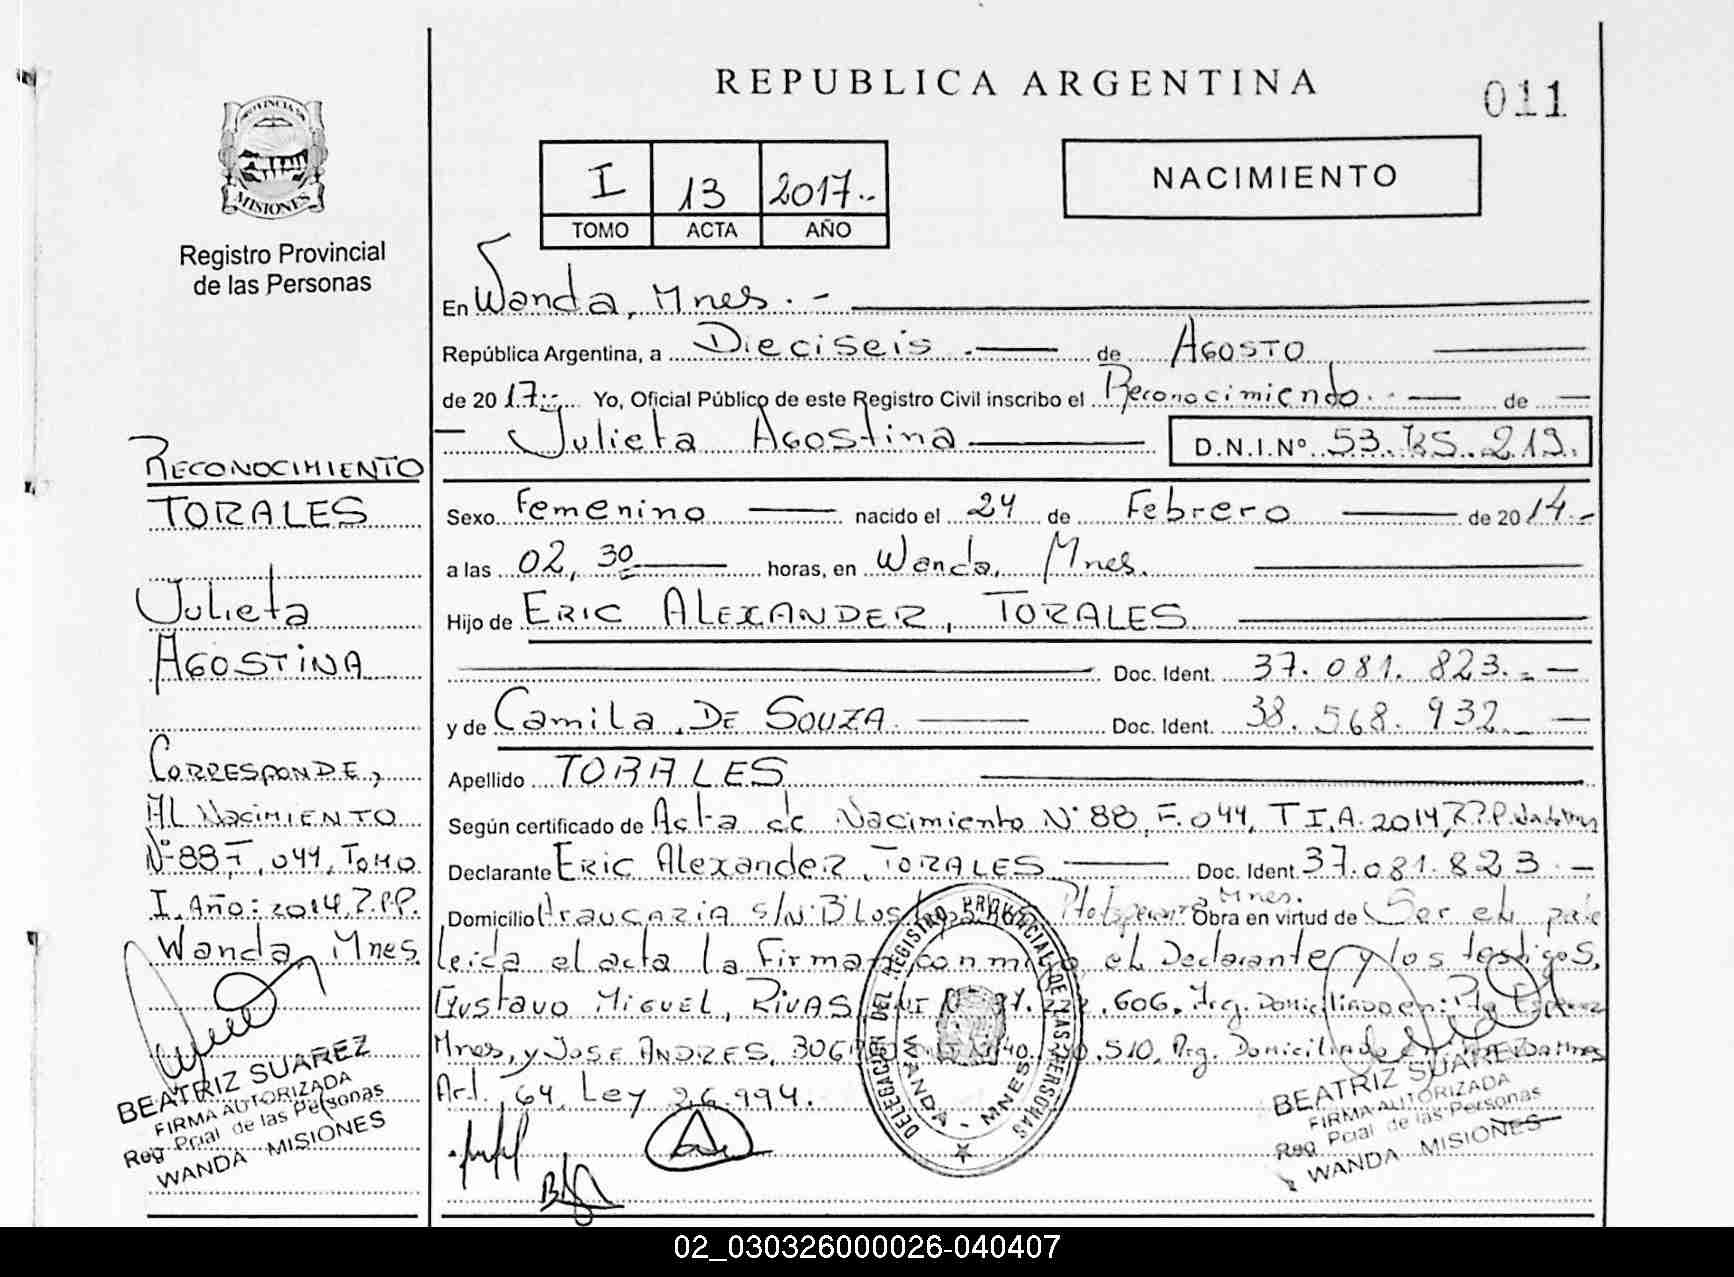 REPUBLICA ARGENTINA
011
PROVINCIA DE
MISIONES
Registro Provincial
de las Personas
I 13 2017.-
TOMO ACTA AÑO
NACIMIENTO
En Wanda, Mnes. -
República Argentina, a Dieciseis .- de AGOSTO
de 2017.- Yo, Oficial Público de este Registro Civil inscribo el Reconocimiendo. - de
Julieta AGOStina D.N.I.Nº 53. 219.
Sexo Femenino nacido el 24 de Febrero de 2014.-
a las 02, 30 horas, en Wanda, Mnes.
Hijo de ERIC ALEXANDER, TORALES
Doc. Ident. 37. 081. 823. -
y de Camila, DE SOUZA. Doc. Ident. 38. 568. 932. -
Apellido TORALES
Según certificado de Acta de Nacimiento Nº 88, F. 044, T I, A. 2014,
Declarante ERIC Alexander, TORALES Doc. Ident. 37. 081. 823. -
Domicilio ARAUCARIA S/N: Mnes. Obra en virtud de Ser el
leida el acta la Firman el Declarante y los testigos,
Gustavo MIGUEL, RIVAS .606, Arg. Domiciliado en:
Mnes, y JOSE ANDRES, .510, Arg. Domiciliado
Art. 64, Ley 26.994.
RECONOCIMIENTO
TORALES
Julieta
AGOSTINA
CORRESPONDE,
AL NACIMIENTO
Nº 88 F, 044, TOMO
I. Año: 2014,
Wanda, Mnes.
BEATRIZ SUAREZ
FIRMA AUTORIZADA
Reg. Pcial de las Personas
WANDA MISIONES
DELEGACION DEL REGISTRO PROVINCIAL DE LAS PERSONAS
WANDA - MNES
BEATRIZ SUAREZ
FIRMA AUTORIZADA
Reg. Pcial de las Personas
WANDA MISIONES
02_030326000026-040407